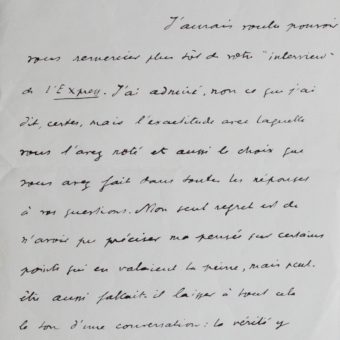 J'aurais voulu pouvoir
vous remercier plus tôt de votre "interview"
de l'Express. J'ai admiré, non ce que j'ai
dit, certes, mais l'exactitude avec laquelle
vous l'avez noté et aussi le choix que
vous avez fait dans toutes les réponses
à vos questions. Mon seul regret est de
n'avoir pu préciser ma pensée sur certains
points qui en valaient la peine, mais peut-
être aussi fallait-il laisser à tout cela
le ton d'une conversation : la vérité y